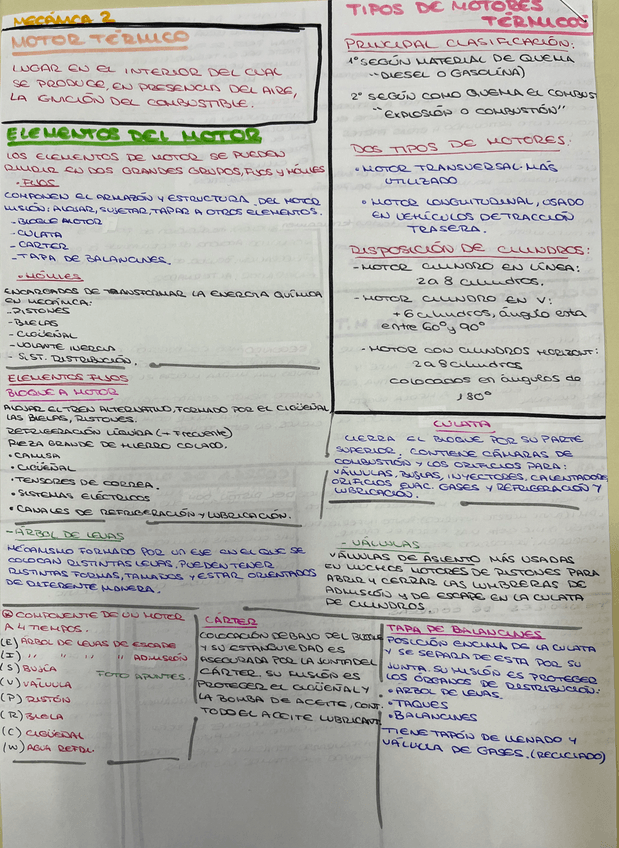 MECÁNICA 2
MOTOR TÉRMICO
LUGAR EN EL INTERIOR DEL CUAL
SE PRODUCE, EN PRESENCIA DEL AIRE,
LA IGNICIÓN DEL COMBUSTIBLE.
ELEMENTOS DEL MOTOR
LOS ELEMENTOS DE MOTOR SE PUEDEN
DIVIDIR EN DOS GRANDES GRUPOS, FIJOS Y MÓVILES
• FIJOS
COMPONEN EL ARMAZÓN Y ESTRUCTURA DEL MOTOR
MISIÓN: ALOJAR, SUJETAR, TAPAR A OTROS ELEMENTOS.
- BLOQUE MOTOR
- CULATA
- CÁRTER
- TAPA DE BALANCINES.
• MÓVILES
ENCARGADOS DE TRANSFORMAR LA ENERGÍA QUÍMICA
EN MECÁNICA:
- PISTONES
- BIELAS
- CIGÜEÑAL
- VOLANTE INERCIA
- SIST. DISTRIBUCIÓN.
ELEMENTOS FIJOS
BLOQUE A MOTOR
ALOJAR EL TREN ALTERNATIVO, FORMADO POR EL CIGÜEÑAL,
LAS BIELAS, PISTONES.
REFRIGERACIÓN LÍQUIDA (+ Frecuente)
PIEZA GRANDE DE HIERRO COLADO.
• CAMISA
• CIGÜEÑAL
• TENSORES DE CORREA.
• SISTEMAS ELÉCTRICOS
• CANALES DE REFRIGERACIÓN Y LUBRICACIÓN.
- ÁRBOL DE LEVAS
MECANISMO FORMADO POR UN EJE EN EL QUE SE
COLOCAN DISTINTAS LEVAS, PUEDEN TENER
DISTINTAS FORMAS, TAMAÑOS Y ESTAR ORIENTADOS
DE DIFERENTE MANERA.
COMPONENTE DE UN MOTOR
A 4 TIEMPOS.
(E) ÁRBOL DE LEVAS DE ESCAPE
(I) " " " " ADMISIÓN
(S) BUJÍA
(V) VÁLVULA
FOTO APUNTES.
(P) PISTÓN
(R) BIELA
(C) CIGÜEÑAL
(W) AGUA REFRI.
TIPOS DE MOTORES
TÉRMICOS
PRINCIPAL CLASIFICACIÓN:
1º SEGÚN MATERIAL DE QUEMA
"DIESEL O GASOLINA)
2º SEGÚN COMO QUEMA EL COMBUST
"EXPLOSIÓN O COMBUSTIÓN"
DOS TIPOS DE MOTORES:
• MOTOR TRANSVERSAL MÁS
UTILIZADO
• MOTOR LONGITUDINAL, USADO
EN VEHÍCULOS DE TRACCIÓN
TRASERA.
DISPOSICIÓN DE CILINDROS:
- MOTOR CILINDRO EN LÍNEA:
2 a 8 cilindros.
- MOTOR CILINDRO EN V:
+6 cilindros, ángulo esta
entre 60º y 90º
- MOTOR CON CILINDROS HORIZONT:
2 a 8 cilindros
colocados en ángulos de
180º
CULATA
CIERRA EL BLOQUE POR SU PARTE
SUPERIOR. CONTIENE CÁMARAS DE
COMBUSTIÓN Y LOS ORIFICIOS PARA:
VÁLVULAS, BUJÍAS, INYECTORES, CALENTADORES
ORIFICIOS EVAC. GASES Y REFRIGERACIÓN Y
LUBRICACIÓN.
- VÁLVULAS
VÁLVULAS DE ASIENTO MÁS USADAS
EN MUCHOS MOTORES DE PISTONES PARA
ABRIR Y CERRAR LAS LUMBRERAS DE
ADMISIÓN Y DE ESCAPE EN LA CULATA
DE CILINDROS.
CÁRTER
COLOCACIÓN DEBAJO DEL BLOQUE
Y SU ESTANQUIEDAD ES
ASEGURADA POR LA JUNTA DEL
CÁRTER. SU MISIÓN ES
PROTEGER EL CIGÜEÑAL Y
LA BOMBA DE ACEITE, CONT.
TODO EL ACEITE LUBRICANT
TAPA DE BALANCINES
POSICIÓN ENCIMA DE LA CULATA
Y SE SEPARA DE ESTA POR SU
JUNTA. SU MISIÓN ES PROTEGER
LOS ÓRGANOS DE DISTRIBUCIÓN:
• ÁRBOL DE LEVAS.
• TAQUES
• BALANCINES
TIENE TAPÓN DE LLENADO Y
VÁLVULA DE GASES. (RECICLADO)